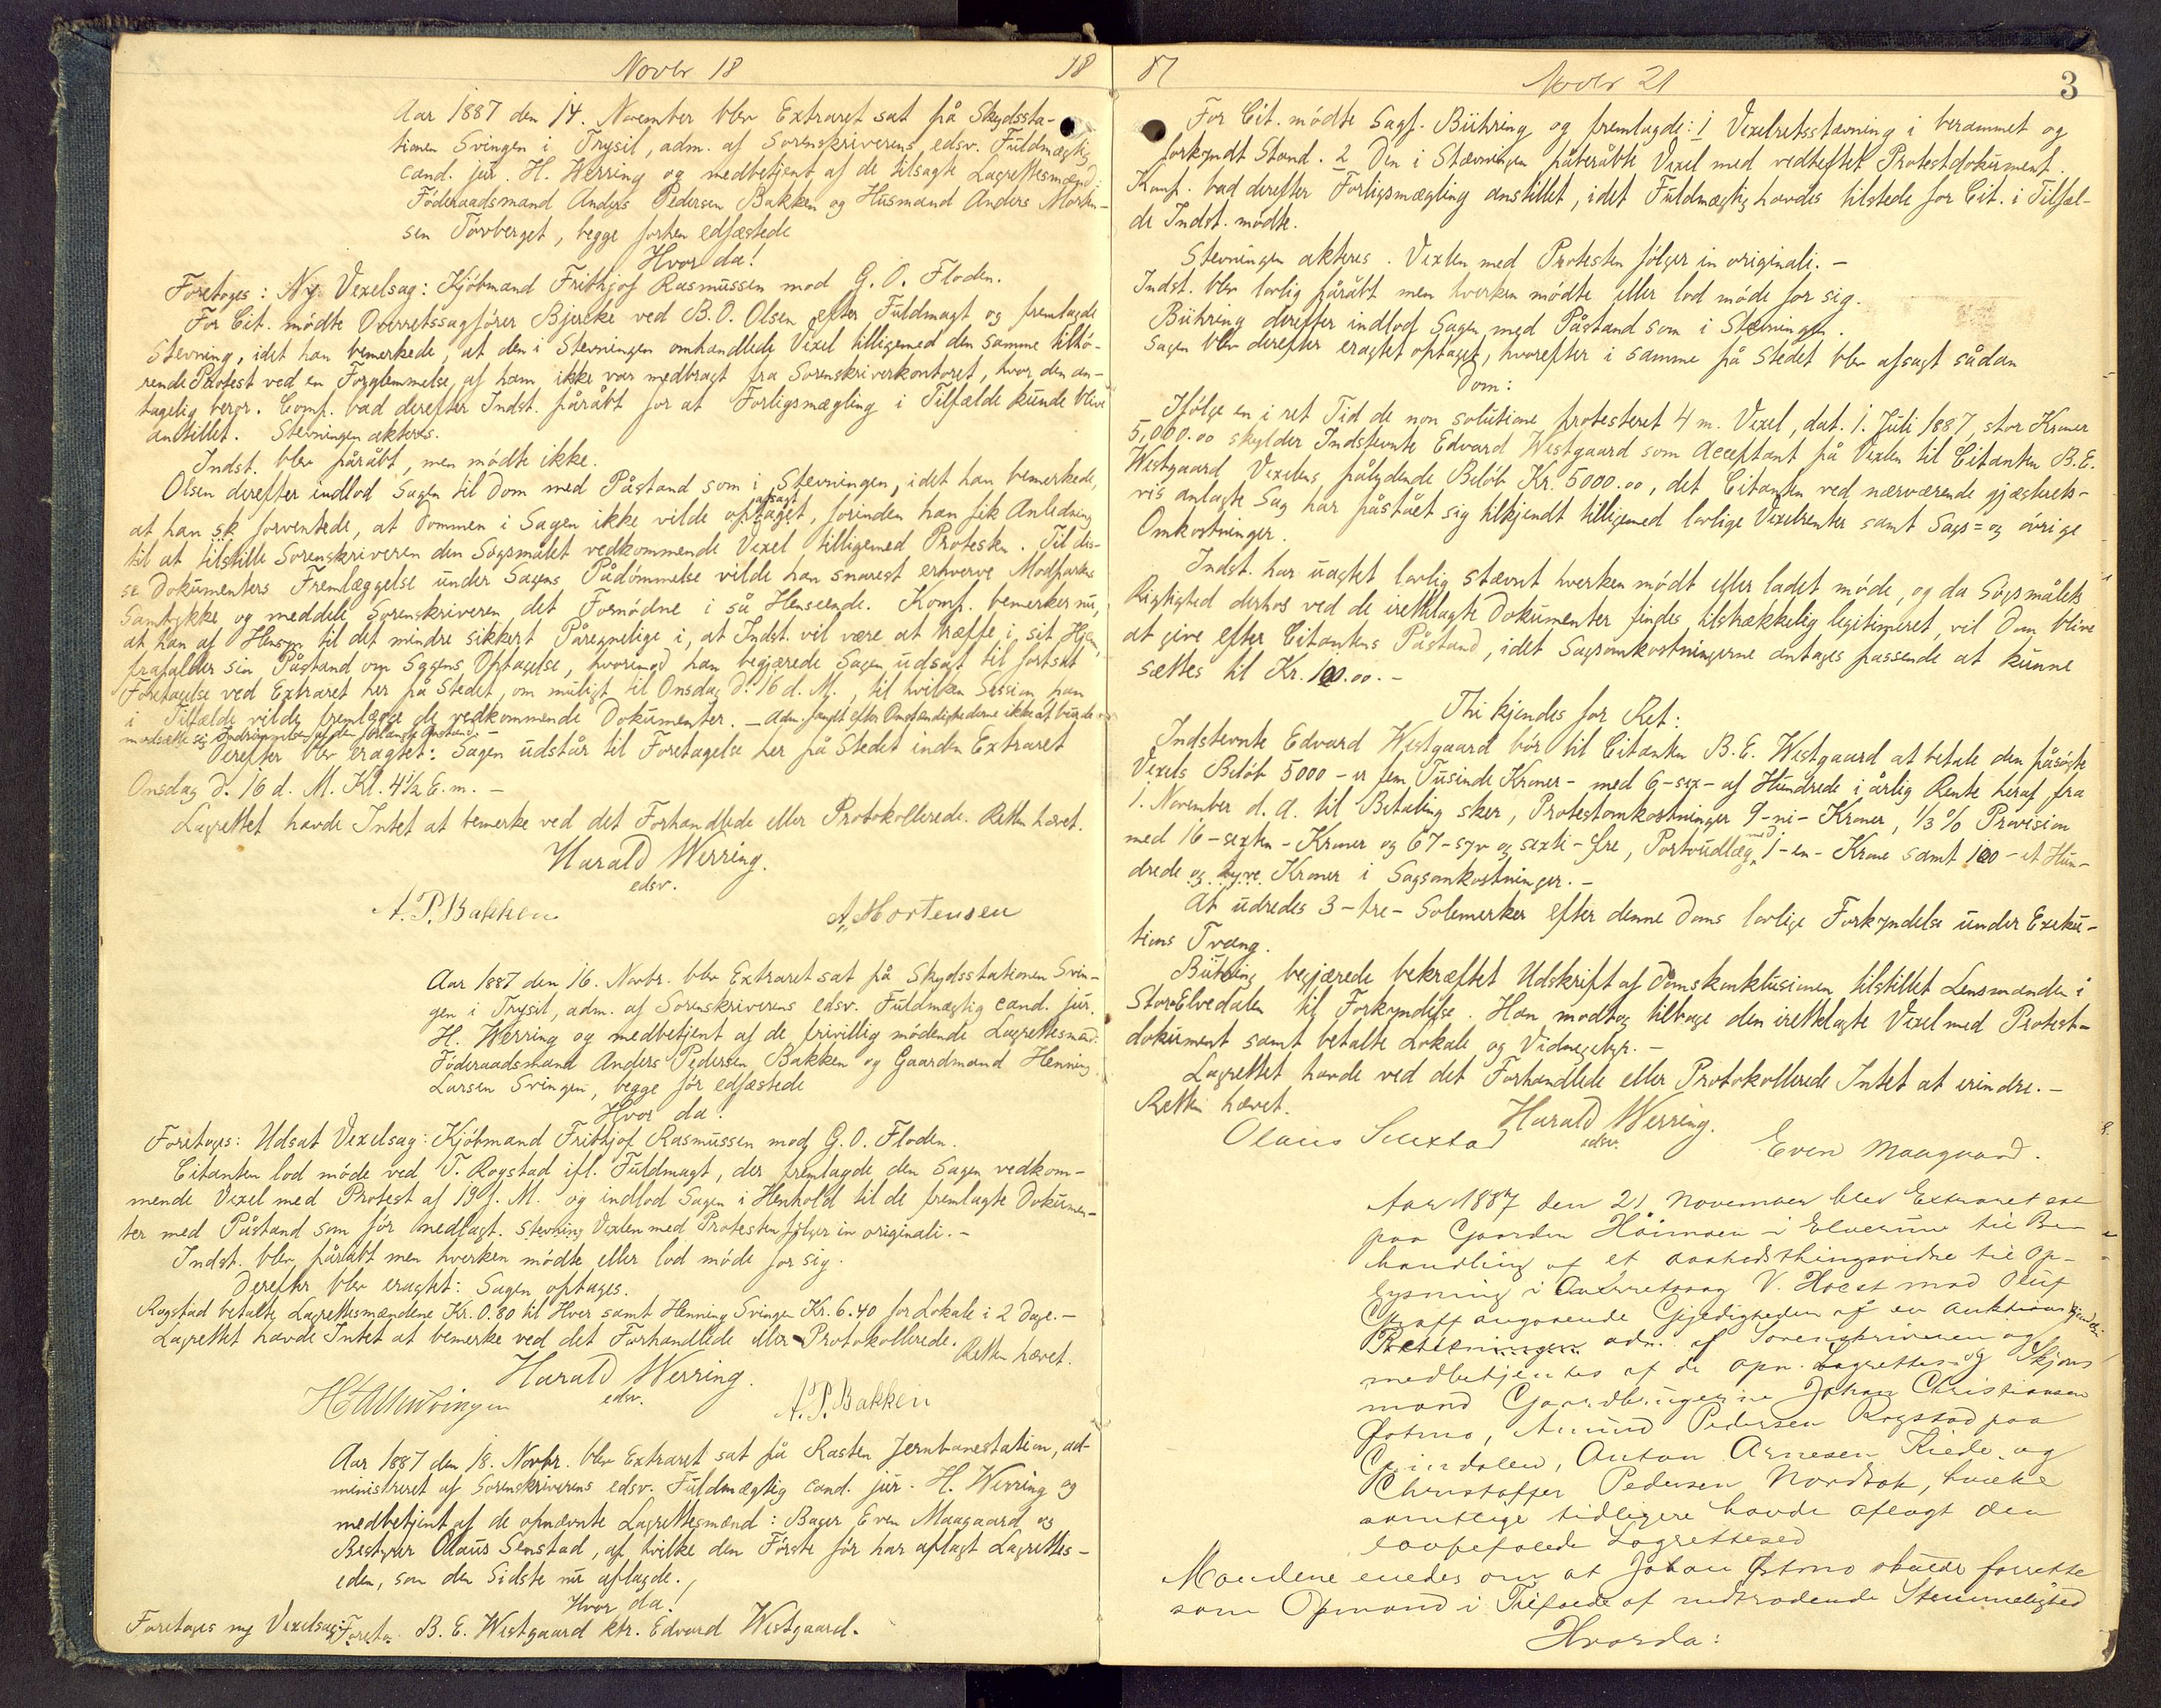 Novbr 18
18
Aar 1887 den 14. November blev Extraret sat på Skydssta-
tionen Svingen i Trysil, adm. af Sorenskriverens edsv. Fuldmægtig
cand. jur. H. Werring og medbetjent af de tilsagte Lagrettesmænd:
Föderaadsmand Anders Pedersen Bakken og Husmand Anders Morten-
sen Törberget, begge forhen edfæstede
Hvor da!
Foretoges: Ny Vexelsag: Kjöbmand Frithjof Rasmussen mod G. O. Floden.
For Cit. mödte Overretssagförer Bjercke ved B. O. Olsen efter Fuldmagt og fremlagde
Stevning, idet han bemerkede, at den i Stevningen omhandlede Vexel tilligemed den samme tilhö-
rende Protest ved en Forglemmelse af ham ikke var medbragt fra Sorenskriverkontoret, hvor den an-
tagelig beror. Comp. bad derefter Indst. påråbt for at Forligsmægling i Tilfælde kunde blive
anstillet. Stevningen akteres.
Indst. blev påråbt, men mödte ikke.
Olsen derefter indlod Sagen til Dom med Påstand som i Stevningen, idet han bemerkede,
at han sk forventede, at Dommen i Sagen ikke vilde optaget afsagt, forinden han fik Anledning
til at tilstille Sorenskriveren den Sögsmålet vedkommende Vexel tilligemed Protesten. Til dis-
se Dokumenters Fremlæggelse under Sagens Pådömmelse vilde han snarest erhverve Modpartens
Samtykke og meddele Sorenskriveren det Fornödne i så Henseende. Komp. bemerker nu,
at han af Hensyn til det mindre sikkert Påregnelige i, at Indst. vil være at træffe i sit Hjem,
frafalder sin Påstand om Sagens Optagelse, hvorimod han begjærede Sagen udsat til fortsat
Foretagelse ved Extraret her på Stedet, om muligt til Onsdag d. 16 d. M., til hvilken Session han
i Tilfælde vilde fremlægge de vedkommende Dokumenter. – Adm. fandt efter Omstændighederne ikke at burde
modsætte sig Indrömmelsen af den forlangte Anstand. –
Derefter blev eragtet: Sagen udstår til Foretagelse her på Stedet inden Extraret
Onsdag d. 16 d. M. Kl. 4½ E. m. –
Lagrettet havde Intet at bemerke ved det Forhandlede eller Protokollerede. Retten hævet.
Harald Werring.
edsv.
A. P. Bakken
A. Mortensen
Aar 1887 den 16. Novbr. blev Extraret sat på Skydsstationen Svin-
gen i Trysil, adm. af Sorenskriverens edsv. Fuldmægtig cand. jur.
H. Werring og medbetjent af de frivillig mödende Lagrettesmænd:
Föderaadsmand Anders Pedersen Bakken og Gaardmand Henning
Larsen Svingen, begge för edfæstede
Hvor da!
Foretoges: Udsat Vexelsag: Kjöbmand Frithjof Rasmussen mod G. O. Floden.
Citanten lod möde ved T. Rogstad ifl. Fuldmagt, der fremlagde den Sagen vedkom-
mende Vexel med Protest af 19 f. M. og indlod Sagen i Henhold til de fremlagte Dokumen-
ter med Påstand som för nedlagt. Stevning Vexlen med Protesten fölger in originali. –
Indst. blev påråbt men hverken mödte eller lod möde for sig.
Derefter blev eragtet: Sagen optages.
Rogstad betalte Lagrettesmændene Kr. 0.80 til Hver samt Henning Svingen Kr. 6.40 for Lokale i 2 Dage. –
Lagrettet havde Intet at bemerke ved det Forhandlede eller Protokollerede.
Retten hævet.
Harald Werring.
edsv.
A. P. Bakken
Aar 1887 den 18. Novbr. blev Extraret sat på Rasten Jernbanestation, ad-
ministreret af Sorenskriverens edsv. Fuldmægtig cand. jur. H. Werring og
medbetjent af de opnævnte Lagrettesmænd: Bager Even Maagaard og
Bestyrer Olaus Senstad, af hvilke den Förste för har aflagt Lagrettes-
eden, som den Sidste nu aflagde.
Hvor da!
Foretoges ny Vexelsag: B. E. Westgaard ktr. Edvard Westgaard.
87
Novbr 21
3
For Cit. mödte Sagf. Bühring og fremlagde: 1 Vexelretsstævning i berammet og
forkyndt Stand. 2 Den i Stævningen påberåbte Vexel med vedheftet Protestdokument.
Komp. bad derefter Forligsmægling anstillet, idet Fuldmægtig havdes tilstede for Cit. i Tilfæl-
de Indst. mödte.
Stevningen akteres. Vexlen med Protesten fölger in originali. –
Indst. blev lovlig påråbt men hverken mödte eller lod möde for sig.
Bühring derefter indlod Sagen med Påstand som i Stævningen.
Sagen blev derefter eragtet optaget, hvorefter i samme på Stedet blev afsagt sådan
Dom:
Ifölge en i ret Tid de non solutione protesteret 4 m. Vexel, dat. 1. Juli 1887, stor Kroner
5,000.00 skylder Indstevnte Edvard Westgaard som Acceptant på Vexlen til Citanten B. E.
Westgaard Vexlens pålydende Belöb Kr. 5000.00, det Citanten ved nærværende gjæsterets-
vis anlagte Sag har påstået sig tilkjendt tilligemed lovlige Vexelrenter samt Sags= og övrige
Omkostninger.
Indst. har uagtet lovlig stævnt hverken mödt eller ladet möde, og da Sögsmålets
Rigtighed derhos ved de irettelagte Dokumenter findes tilstrækkelig legitimeret, vil Dom blive
at give efter Citantens Påstand, idet Sagsomkostningerne antages passende at kunne
sættes til Kr. 100.00. –
Thi kjendes for Ret:
Indstevnte Edvard Westgaard bör til Citanten B. E. Westgaard at betale den påsögte
Vexels Belöb 5000 – er fem Tusinde Kroner – med 6 – sex – af Hundrede i årlig Rente heraf fra
1. November d. A. til Betaling sker, Protestomkostninger 9 – ni – Kroner, 1/3 % Provision
med 16 – sexten – Kroner og 67 – syv og sexti – Öre, Portoudlæg med 1 – en – Krone samt 100 – et Hun-
drede og tyve Kroner i Sagsomkostninger. –
At udredes 3 – tre – Solemerker efter denne Doms lovlige Forkyndelse under Exeku-
tions Tvang.
Bühring begjærede bekræftet Udskrift af Domskonklusionen tilstillet Lensmanden i
Stor-Elvedalen til Forkyndelse. Han modtog tilbage den irettelagte Vexel med Protest-
dokument samt betalte Lokale og Vidnegebyr. –
Lagrettet havde ved det Forhandlede eller Protokollerede Intet at erindre. –
Retten hævet.
Harald Werring.
edsv.
Olaus Senstad
Even Maagaard.
Aar 1887 den 21 November blev Extraret sat
paa Gaarden Höimoen i Elverum til Be-
handling af et aastedsthingsvidne til Op-
lysning i V. Hoest mod Oluf
Graff angaaende Gyldigheden af en Auktion
adm. af Sorenskriveren og
medbetjentes af de opn. Lagrettes og Skjöns
mænd Gaardbrugerne Johan Christiansen
Østmo, Amund Pedersen Rogstad paa
Grindalen, Anton Arnesen Kiede og
Christoffer Pedersen Nordtok, hvilke
samtlige tidligere havde aflagt den
lovbefalede Lagretteesed
Mændene enedes om at Johan Østmo skulde forrette
som Opmand i Tilfælde af indtrædende Stemmelighed
Hvorda: